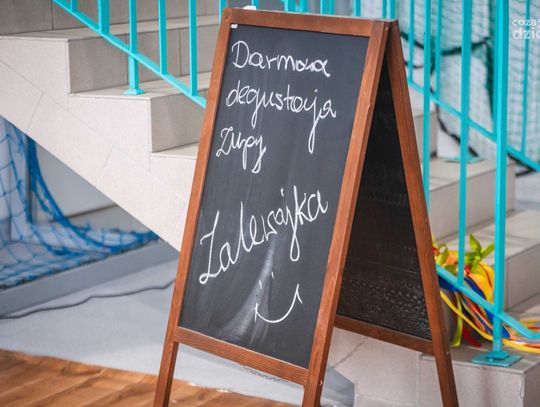 Darmowa
degustacja
zupy
Zalewajka
coza
dzień